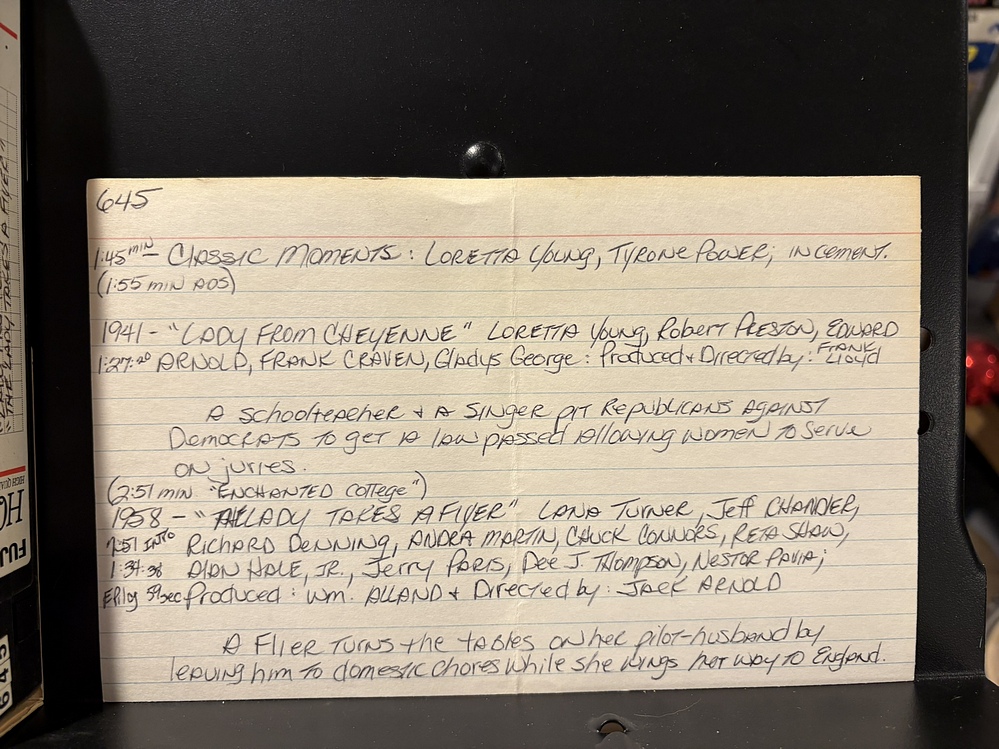 645
1:45 min – Classic Moments: Loretta Young, Tyrone Power; in cement.
(1:55 min ADS)
1941 – "LADY FROM CHEYENNE" Loretta Young, Robert Preston, Edward
1:27:20 Arnold, Frank Craven, Gladys George: Produced + Directed by: Frank Lloyd
A schoolteacher + a singer pit Republicans against
Democrats to get a law passed allowing women to serve
on juries.
(2:51 min "ENCHANTED COTTEGE")
1958 – "THE LADY TAKES A FLYER" Lana Turner, Jeff Chandler,
1:51 INTO Richard Denning, Andra Martin, Chuck Connors, Reta Shaw,
1:34:38 Alan Hale, Jr., Jerry Paris, Dee J. Thompson, Nestor Pavia;
Epilog 59 sec Produced: Wm. Alland + Directed by: Jack Arnold
A Flier turns the tables on her pilot-husband by
leaving him to domestic chores while she wings her way to England.
THE LADY TAKES A FLYER
HIGH
HQ
FUJI
645